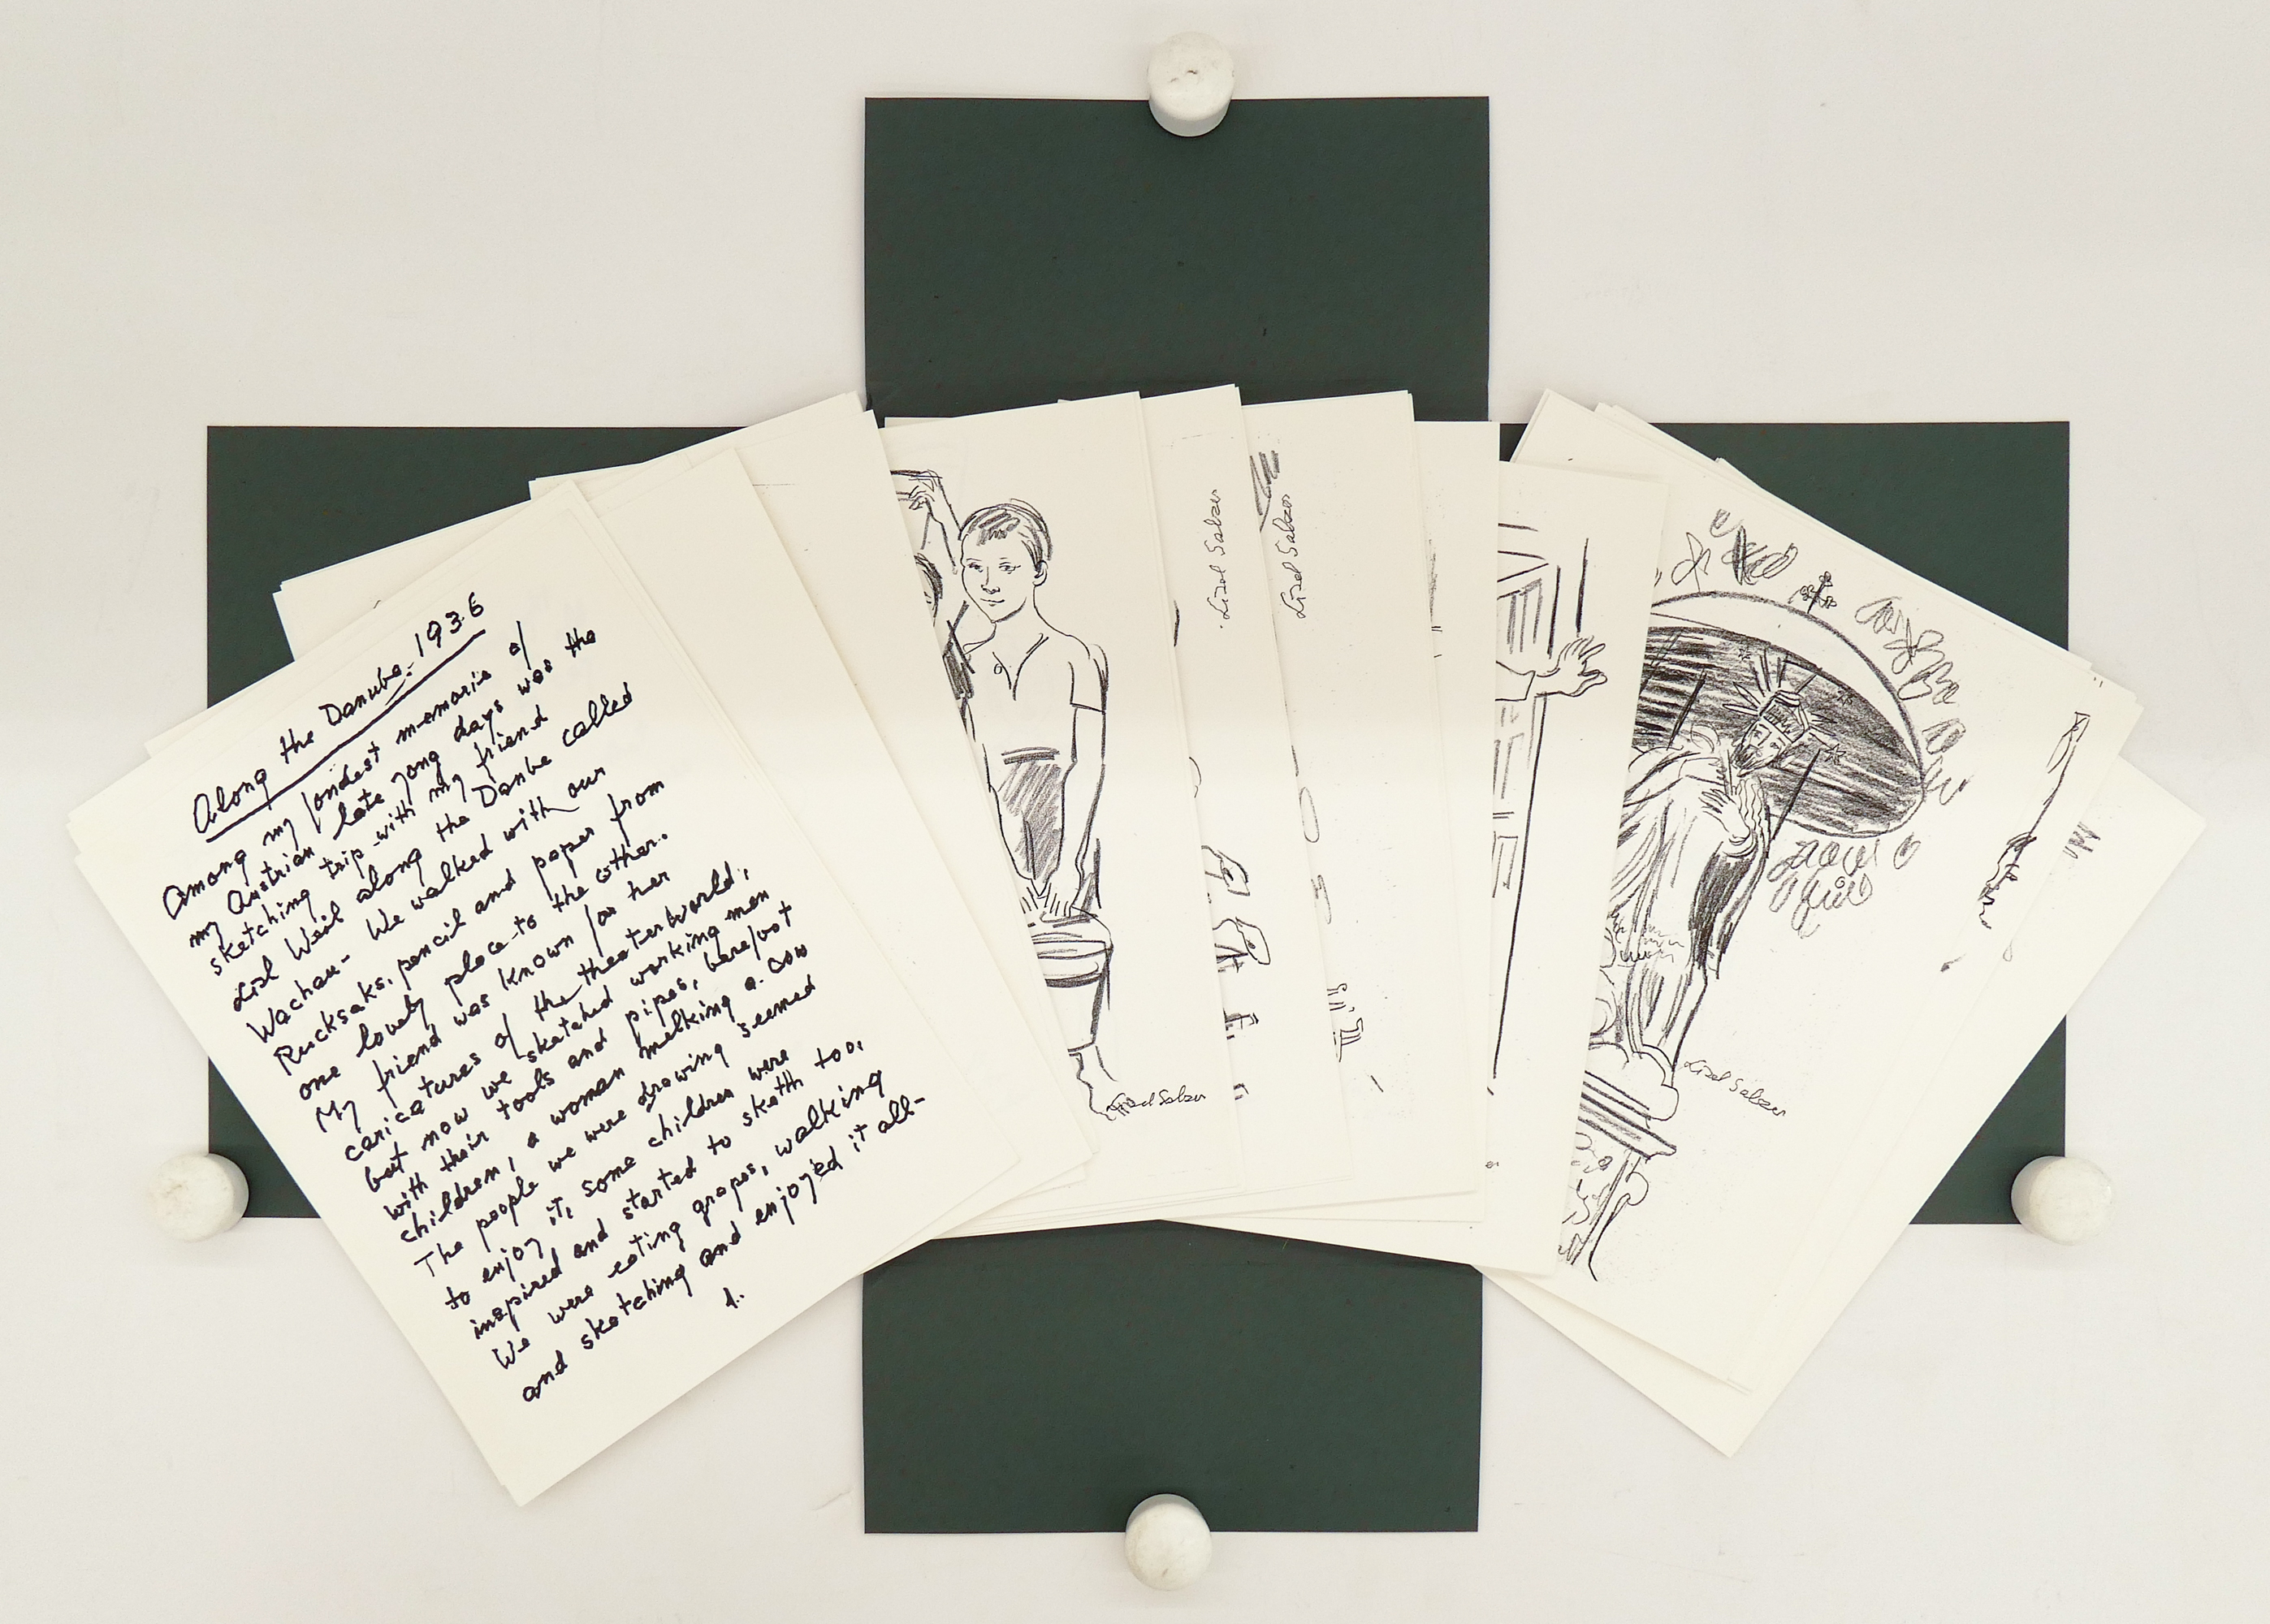 Along the Danube. 1936
Among my fondest memorie of
my Austrian late yong days was the
sketching trip with my friend
Lisl Weil along the Danbe called
Wachau- We walked with our
Rucksaks, pencil and paper from
one lovely place to the other.
My friend was known for her
caricatures of the theaterworld;
but now we sketched working men
with their tools and pipes, barefoot
children, a woman melking a cow
The people we were drawing seemed
to enjoy it, some children were
inspired and started to sketh too.
We were eating grapes, walking
and sketching and enjoy'ed it all-
1.
Lisel Salzer
Lisel Salzer
Lisel Salzer
Lisel Salzer